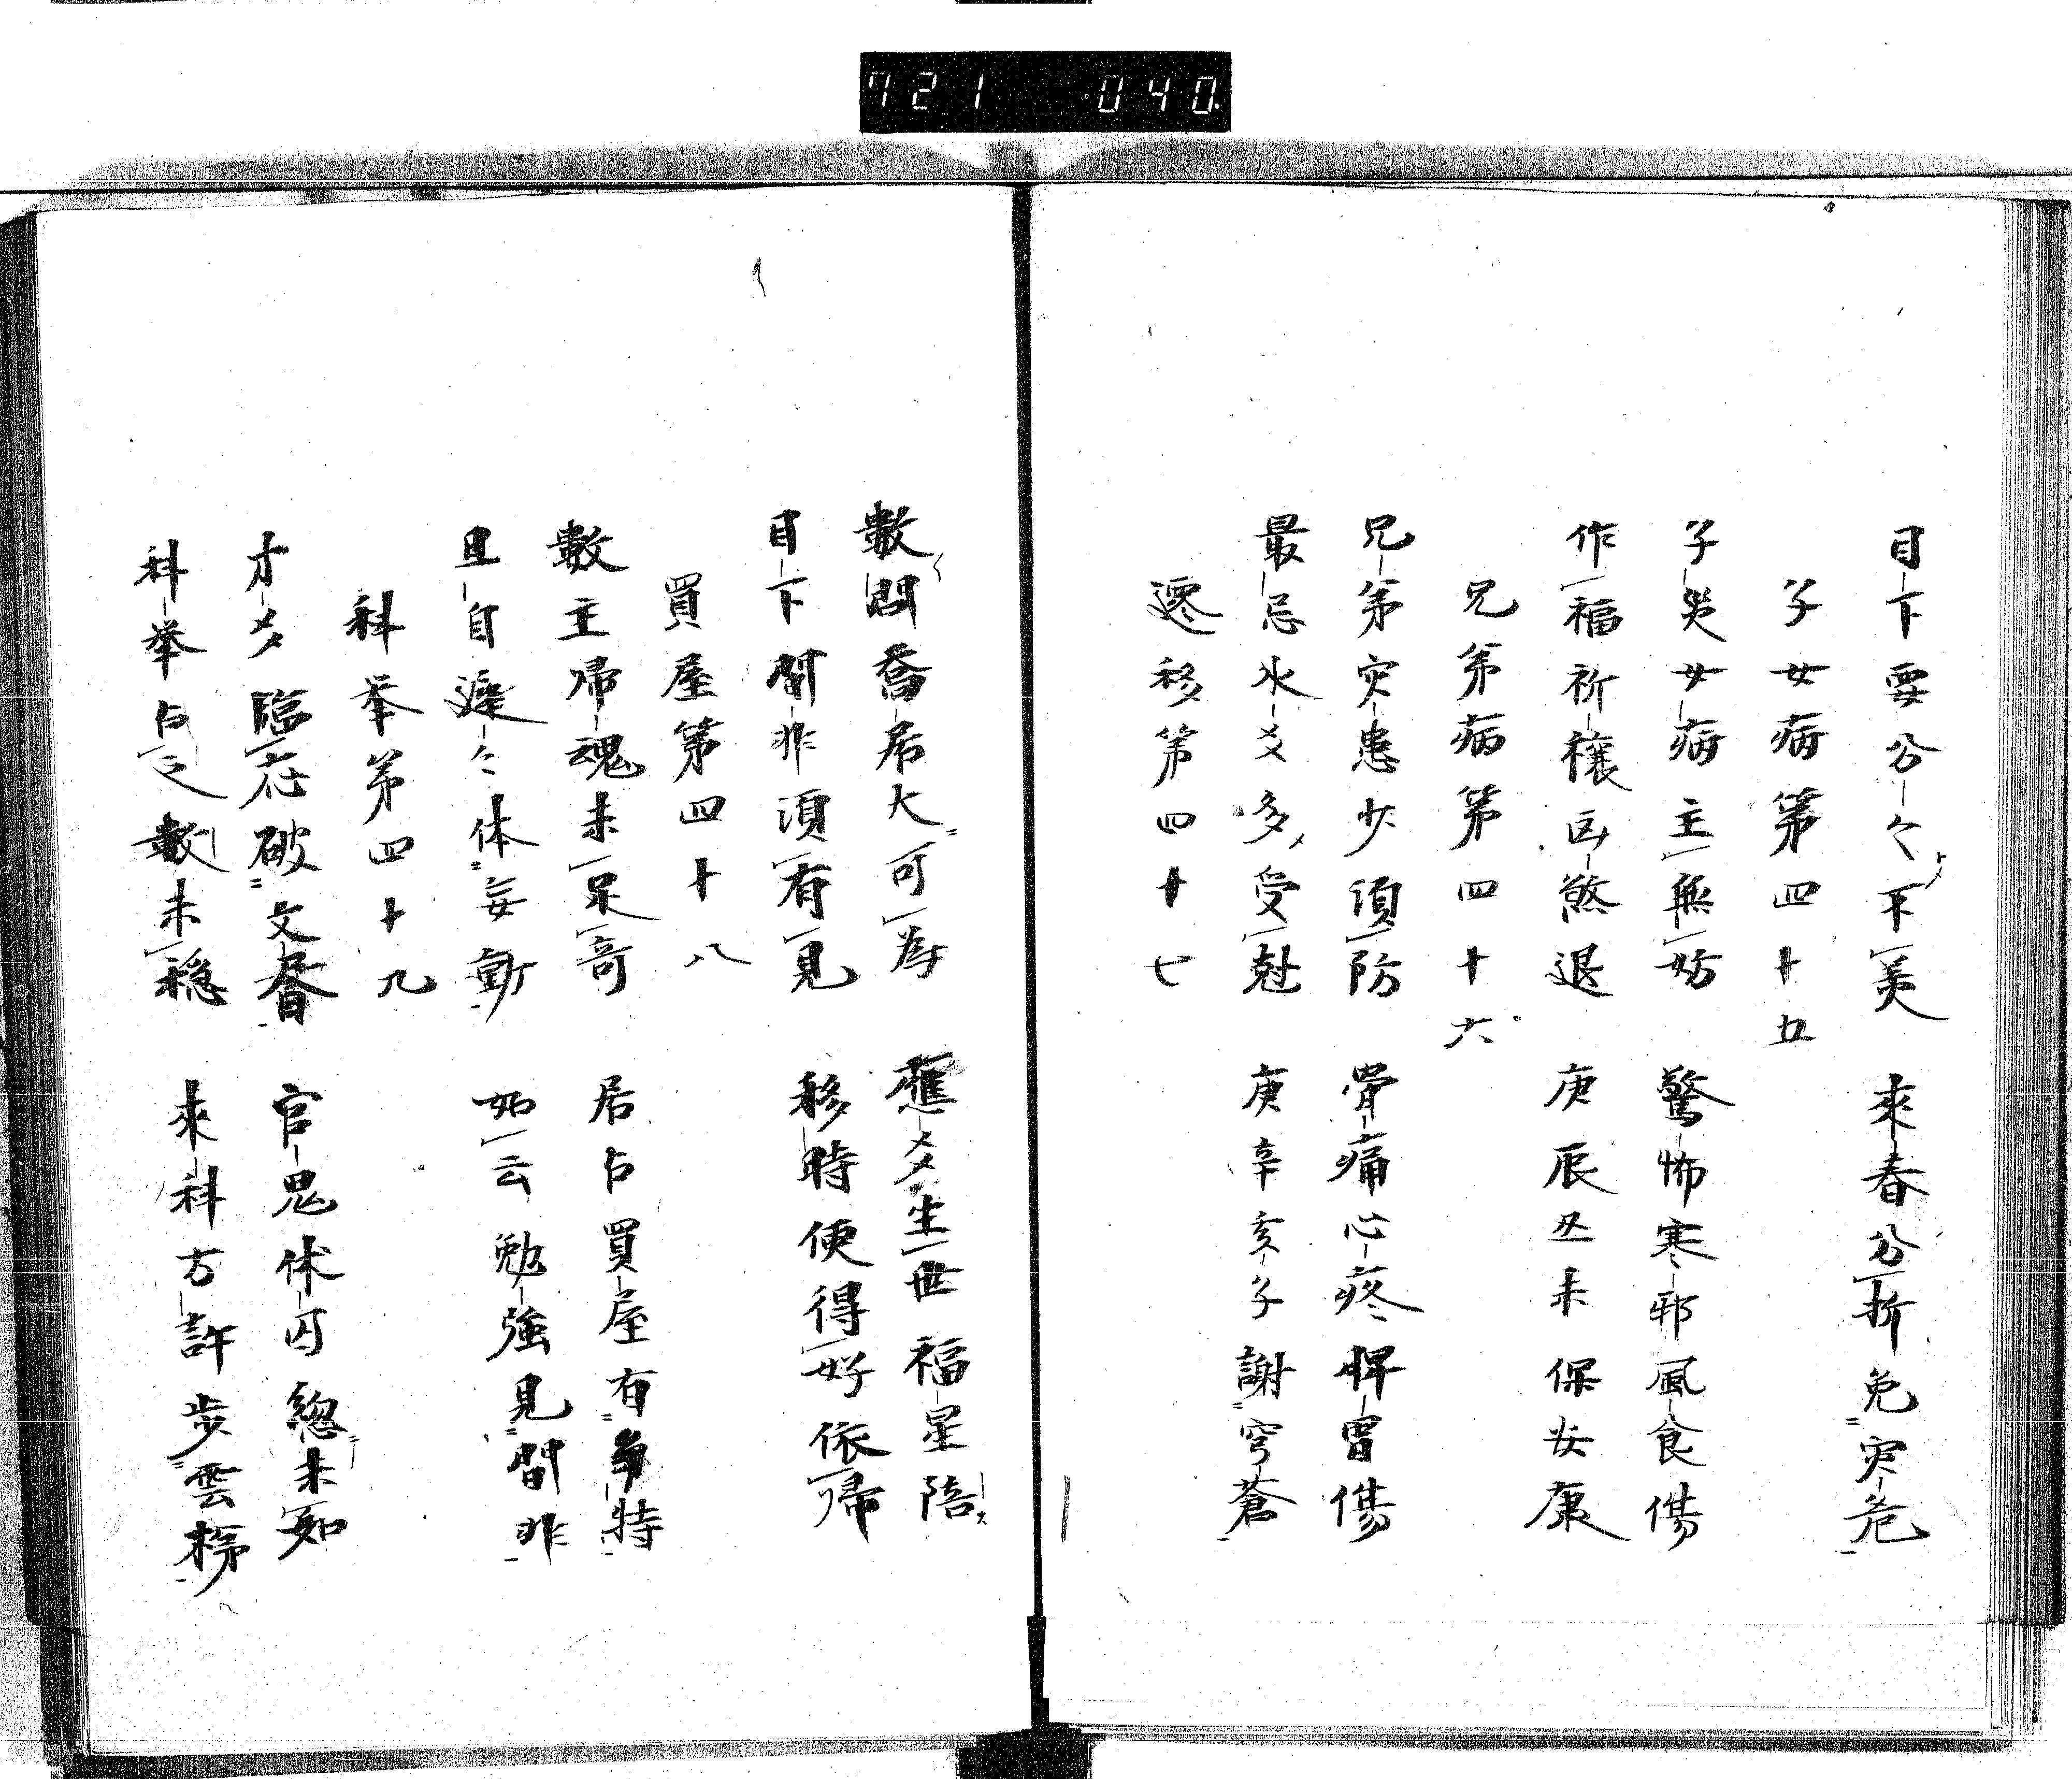 721 040
目下要分々不美 來春分折免灾危
子女病第四十五
子災女病主無妨 驚怖寒邪風食傷
作福祈禳凶煞退 庚辰丑未保安康
兄弟病第四十六
兄弟灾患少湏防 骨痛心疼脾胃傷
最忌水爻多受尅 庚辛亥子謝穹蒼
遷移第四十七
數問喬居大可為 應爻生世福星陪
目下間非湏有見 移時便得好依帰
買屋第四十八
數主帰魂未足奇 居占買屋有争特
且自遲々休妄動 如云勉強見間非
科举第四十九
才爻臨応破文書 官鬼休囚総未如
科举占之數未穏 來科方許步雲梯